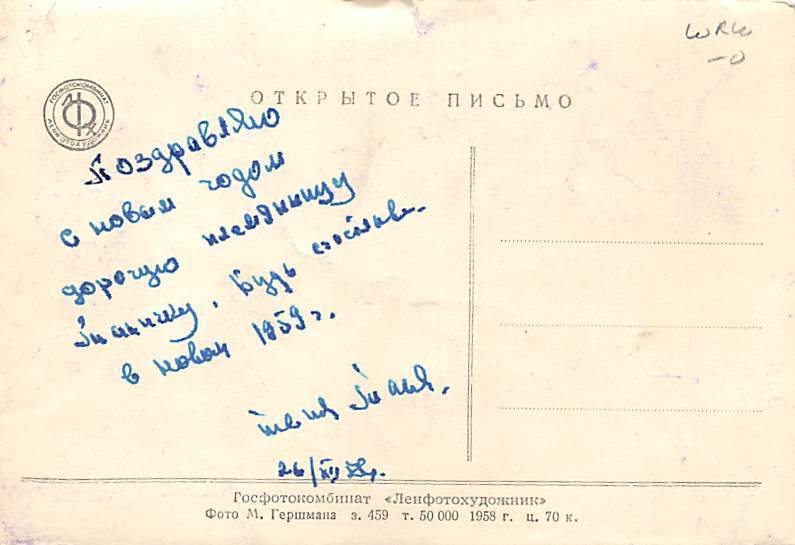 WRW
-0
ГОСФОТОКОМБИНАТ
ЛЕНФОТОХУДОЖНИК
ОТКРЫТОЕ ПИСЬМО
Поздравляю
с новым годом
дорогую племянницу
Танечку. Будь счастлива
в новом 1959 г.
тетя Таня.
26/XII 58 г.
Госфотокомбинат «Ленфотохудожник»
Фото М. Гершмана з. 459 т. 50 000 1958 г. ц. 70 к.